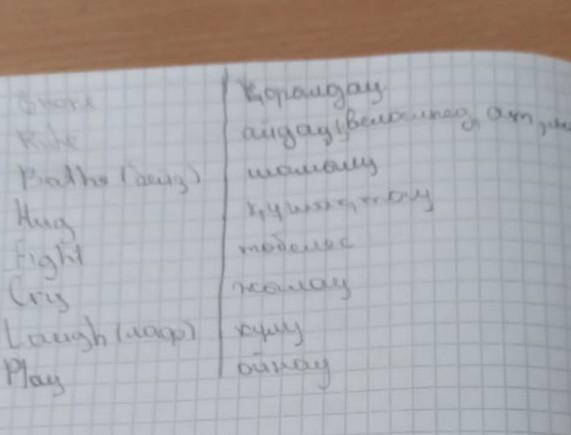 Snore қорылдау
Ride айдау (велосипед, ат,
Bathe шомылу
Hug құшақтау
Fight төбелес
Cry жылау
Laugh (лаф) күлу
Play ойнау